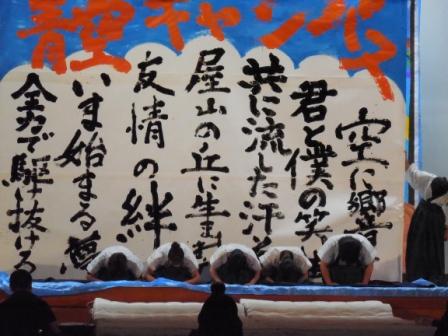 青空キャンバス
空に響
君と僕の笑
共に流した汗
屋山の丘に生まれ
友情の絆
いま始まる
全力で駆け抜ける